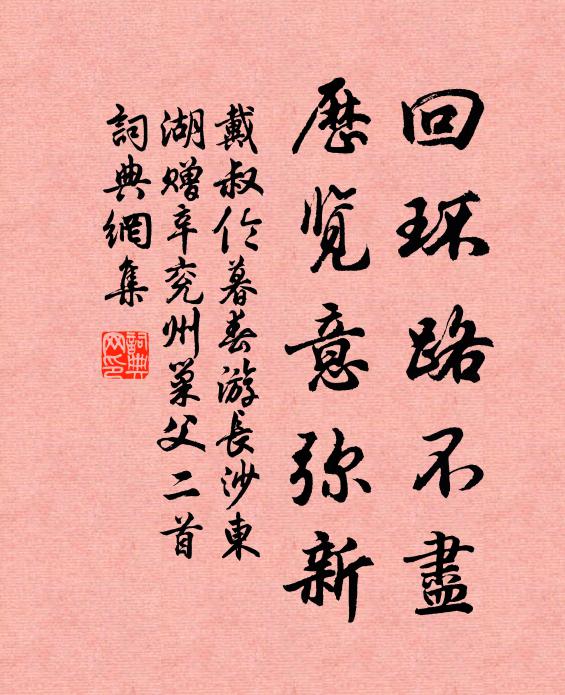 回环路不盡
歷覽意弥新
戴叔伦暮春游長沙東
湖赠辛兖州巢父二首
詞典網集
詞典网印